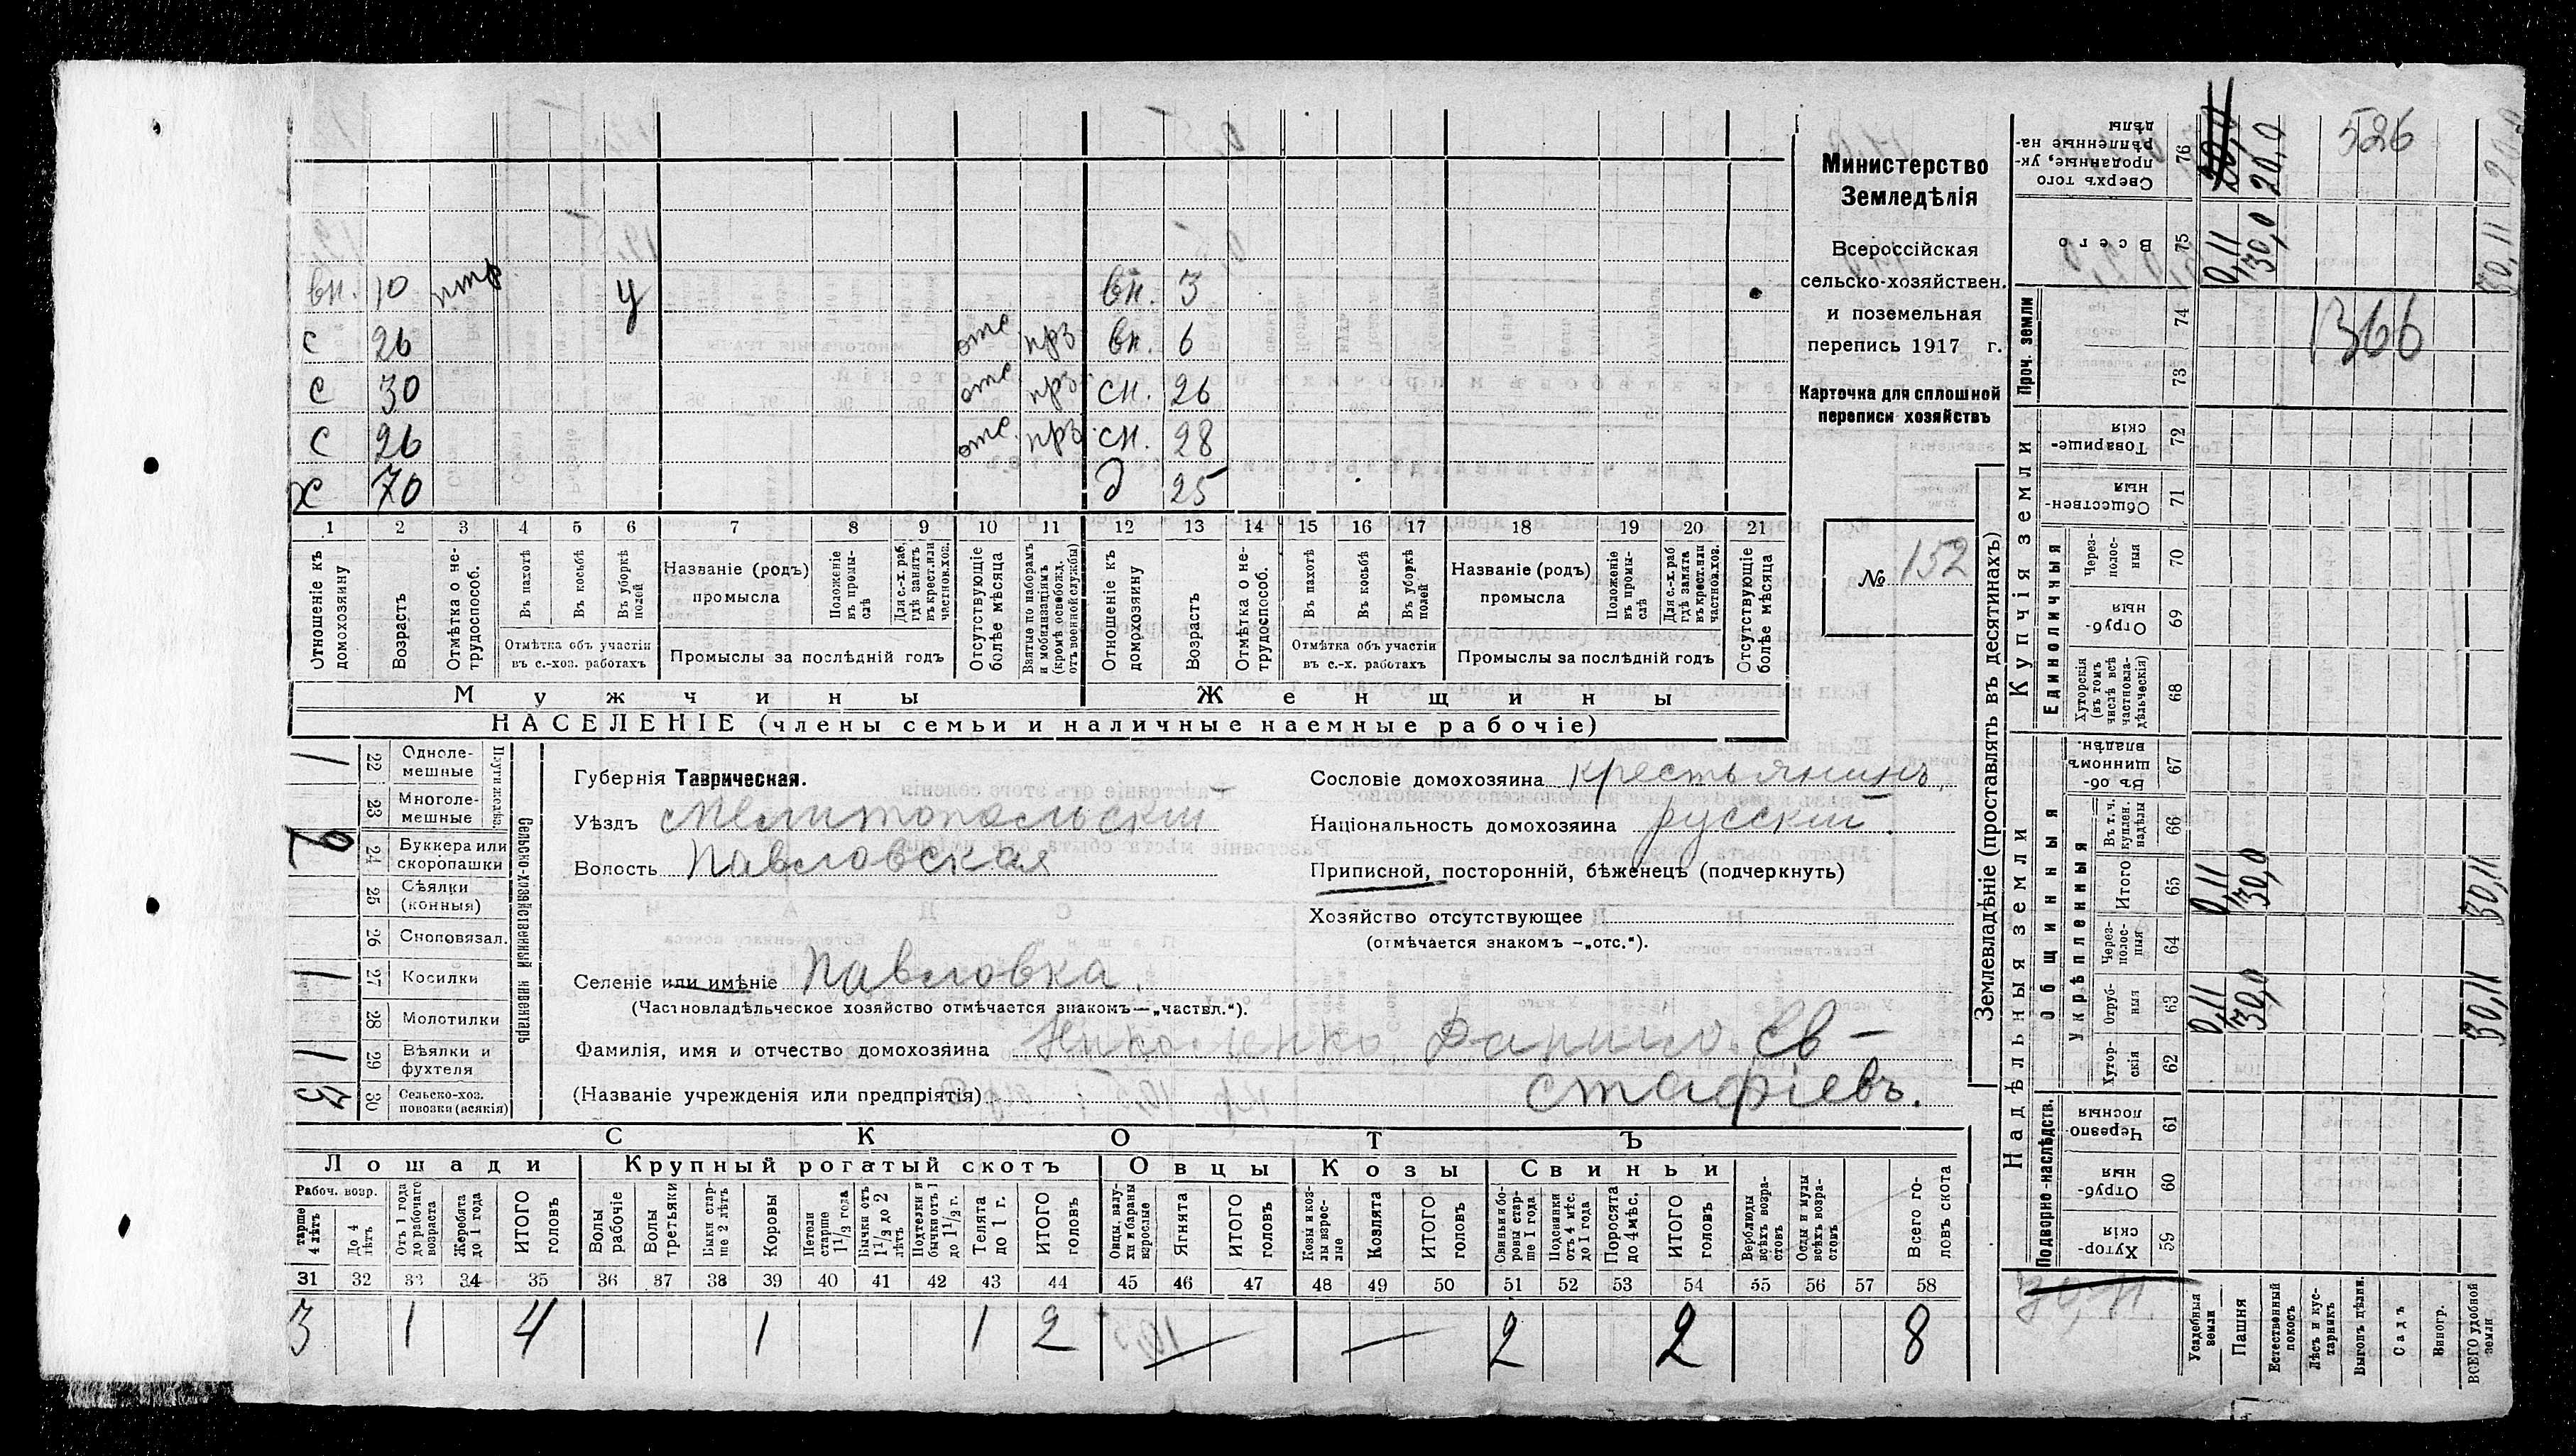 вн. 10 птр у вн. 3
с 26 отс. прз вн. 6
с 30 отс. прз. сн. 26
с 26 отс. прз. сн. 28
х 70 д 25
1 2 3 4 5 6 7 8 9 10 11 12 13 14 15 16 17 18 19 20 21
Отношеніе къ домохозяину
Возрастъ
Отмѣтка о не-трудоспособ.
Въ пахотѣ
Въ косьбѣ
Въ уборкѣ полей
Отмѣтка объ участіи
въ с.-хоз. работахъ
Названіе (родъ)
промысла
Положеніе въ промы-слѣ
Для с.-х. раб. гдѣ занятъ въ крест. или частнов. хоз.
Промыслы за послѣдній годъ
Отсутствующіе болѣе мѣсяца
Взятые по наборамъ и мобилизаціямъ (кромѣ освобожд. отъ военной службы)
Отношеніе къ домохозяину
Возрастъ
Отмѣтка о не-трудоспособ.
Въ пахотѣ
Въ косьбѣ
Въ уборкѣ полей
Отмѣтка объ участіи
въ с.-х. работахъ
Названіе (родъ)
промысла
Положеніе въ промы-слѣ
Для с.-х. раб. гдѣ занята въ крест. или частнов. хоз.
Промыслы за послѣдній годъ
Отсутствующіе болѣе мѣсяца
Мужчины Женщины
НАСЕЛЕНІЕ (члены семьи и наличные наемные рабочіе)
Министерство
Земледѣлія
Всероссійская
сельско-хозяйствен.
и поземельная
перепись 1917 г.
Карточка для сплошной
переписи хозяйствъ
№ 152
Сельско-хозяйственный инвентарь
22 Одноле-мешные 1
23 Многоле-мешные
24 Буккера или скоропашки
25 Сѣялки (конныя)
26 Сноповязал.
27 Косилки 1
28 Молотилки
29 Вѣялки и фухтеля 1
30 Сельско-хоз. повозки (всякія) 3
Губернія Таврическая.
Уѣздъ Мелитопольскій
Волость Павловская
Селеніе или имѣніе Павловка.
(Частновладѣльческое хозяйство отмѣчается знакомъ—„частвл.“).
Сословіе домохозяина крестьянинъ,
Національность домохозяина русскій.
Приписной, посторонній, бѣженецъ (подчеркнуть)
Хозяйство отсутствующее
(отмѣчается знакомъ —„отс.“).
Фамилія, имя и отчество домохозяина Николенко, Данило. Ев-
(Названіе учрежденія или предпріятія) стафіевъ.
СКОТЪ
Лошади Крупный рогатый скотъ Овцы Козы Свиньи
Рабоч. возр.
тарше 4 лѣтъ
До 4 лѣтъ
Отъ 1 года до рабочаго возраста
Жеребята до 1 года
ИТОГО головъ
Волы рабочіе
Волы третьяки
Быки стар-ше 2 лѣтъ
Коровы
Нетели старше 1 1/2 года
Бычки отъ 1 1/2 до 2 лѣтъ
Подтелки и бычки отъ 1 до 1 1/2 г.
Телята до 1 г.
ИТОГО головъ
Овцы, валу-хи и бараны взрослые
Ягнята
ИТОГО головъ
Козы и коз-лы взрос-лые
Козлята
ИТОГО головъ
Свиньи и бо-ровы стар-ше 1 года
Подсвинки отъ 4 мѣс. до 1 года
Поросята до 4 мѣс.
ИТОГО головъ
Верблюды всѣхъ возра-стовъ
Ослы и мулы всѣхъ возра-стовъ
Всего го-ловъ скота
31 32 33 34 35 36 37 38 39 40 41 42 43 44 45 46 47 48 49 50 51 52 53 54 55 56 57 58
3 1 4 1 1 2 — — 2 2 8
Землевладѣніе (проставлять въ десятинахъ)
Надѣльныя земли Купчія земли Проч. земли
Подворно-наслѣдств. Общинныя Единоличныя
Укрѣпленныя
Сверхъ того проданные, ук-рѣпленные на-дѣлы 76 20,0 526
Всего 75 0,11 30,0 30,11
74 1366
73
Товарище-скія 72
Обществен-ныя 71
Через-полос-ныя 70
Отруб-ныя 69
Хуторскія (въ томъ числѣ всѣ частновла-дѣльческія) 68
Въ об-щинномъ владѣн. 67
Въ т. ч. куплен. надѣлы 66
Итого 65 0,11 30,0 30,11
Через-полос-ныя 64
Отруб-ныя 63 0,11 30,0 30,11
Хутор-скія 62
Черезпо-лосныя 61
Отруб-ныя 60
Хутор-скія 59
30,11.
Усадебныя земли
Пашня
Естественный покосъ
Лѣсъ и кус-тарникъ
Выгонъ дѣлим.
Садъ
Виногр.
ВСЕГО удобной земли